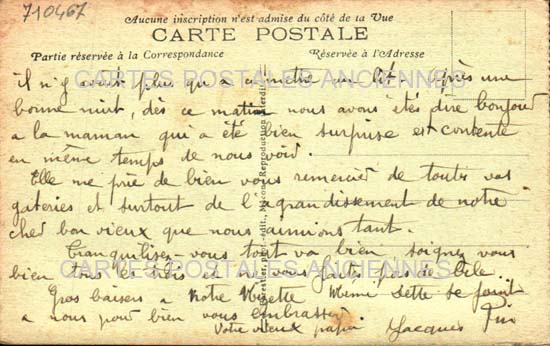 710467
Aucune inscription n'est admise du côté de la Vue
CARTE POSTALE
Partie réservée à la Correspondance
Réservée à l'Adresse
CARTES POSTALES ANCIENNES
il n'y avait plus qu'a se mettre au lit. Après une
bonne nuit, dès ce matin nous avons étés dire bonjour
a la maman qui a été bien surprise est contente
en même temps de nous voir.
Elle me prie de bien vous remercier de toutes vos
gateries et surtout de l'agrandissement de notre
cher bon vieux que nous aimions tant.
Tranquilisez-vous tout va bien soignez vous
bien tous les et ne vous faites pas de bile...
CARTES POSTALES ANCIENNES
Gros baisers a Notre Mimi se joint
a nous pour bien vous embrasser.
Votre vieux papa Jacques
Reproduction interdite